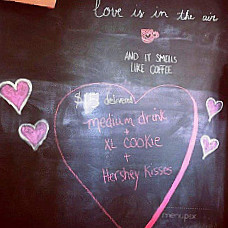 love is in the air
AND IT SMELLS
LIKE COFFEE.
delivered
medium drink
+
XL COOKIE
+
Hershey Kisses
menupix